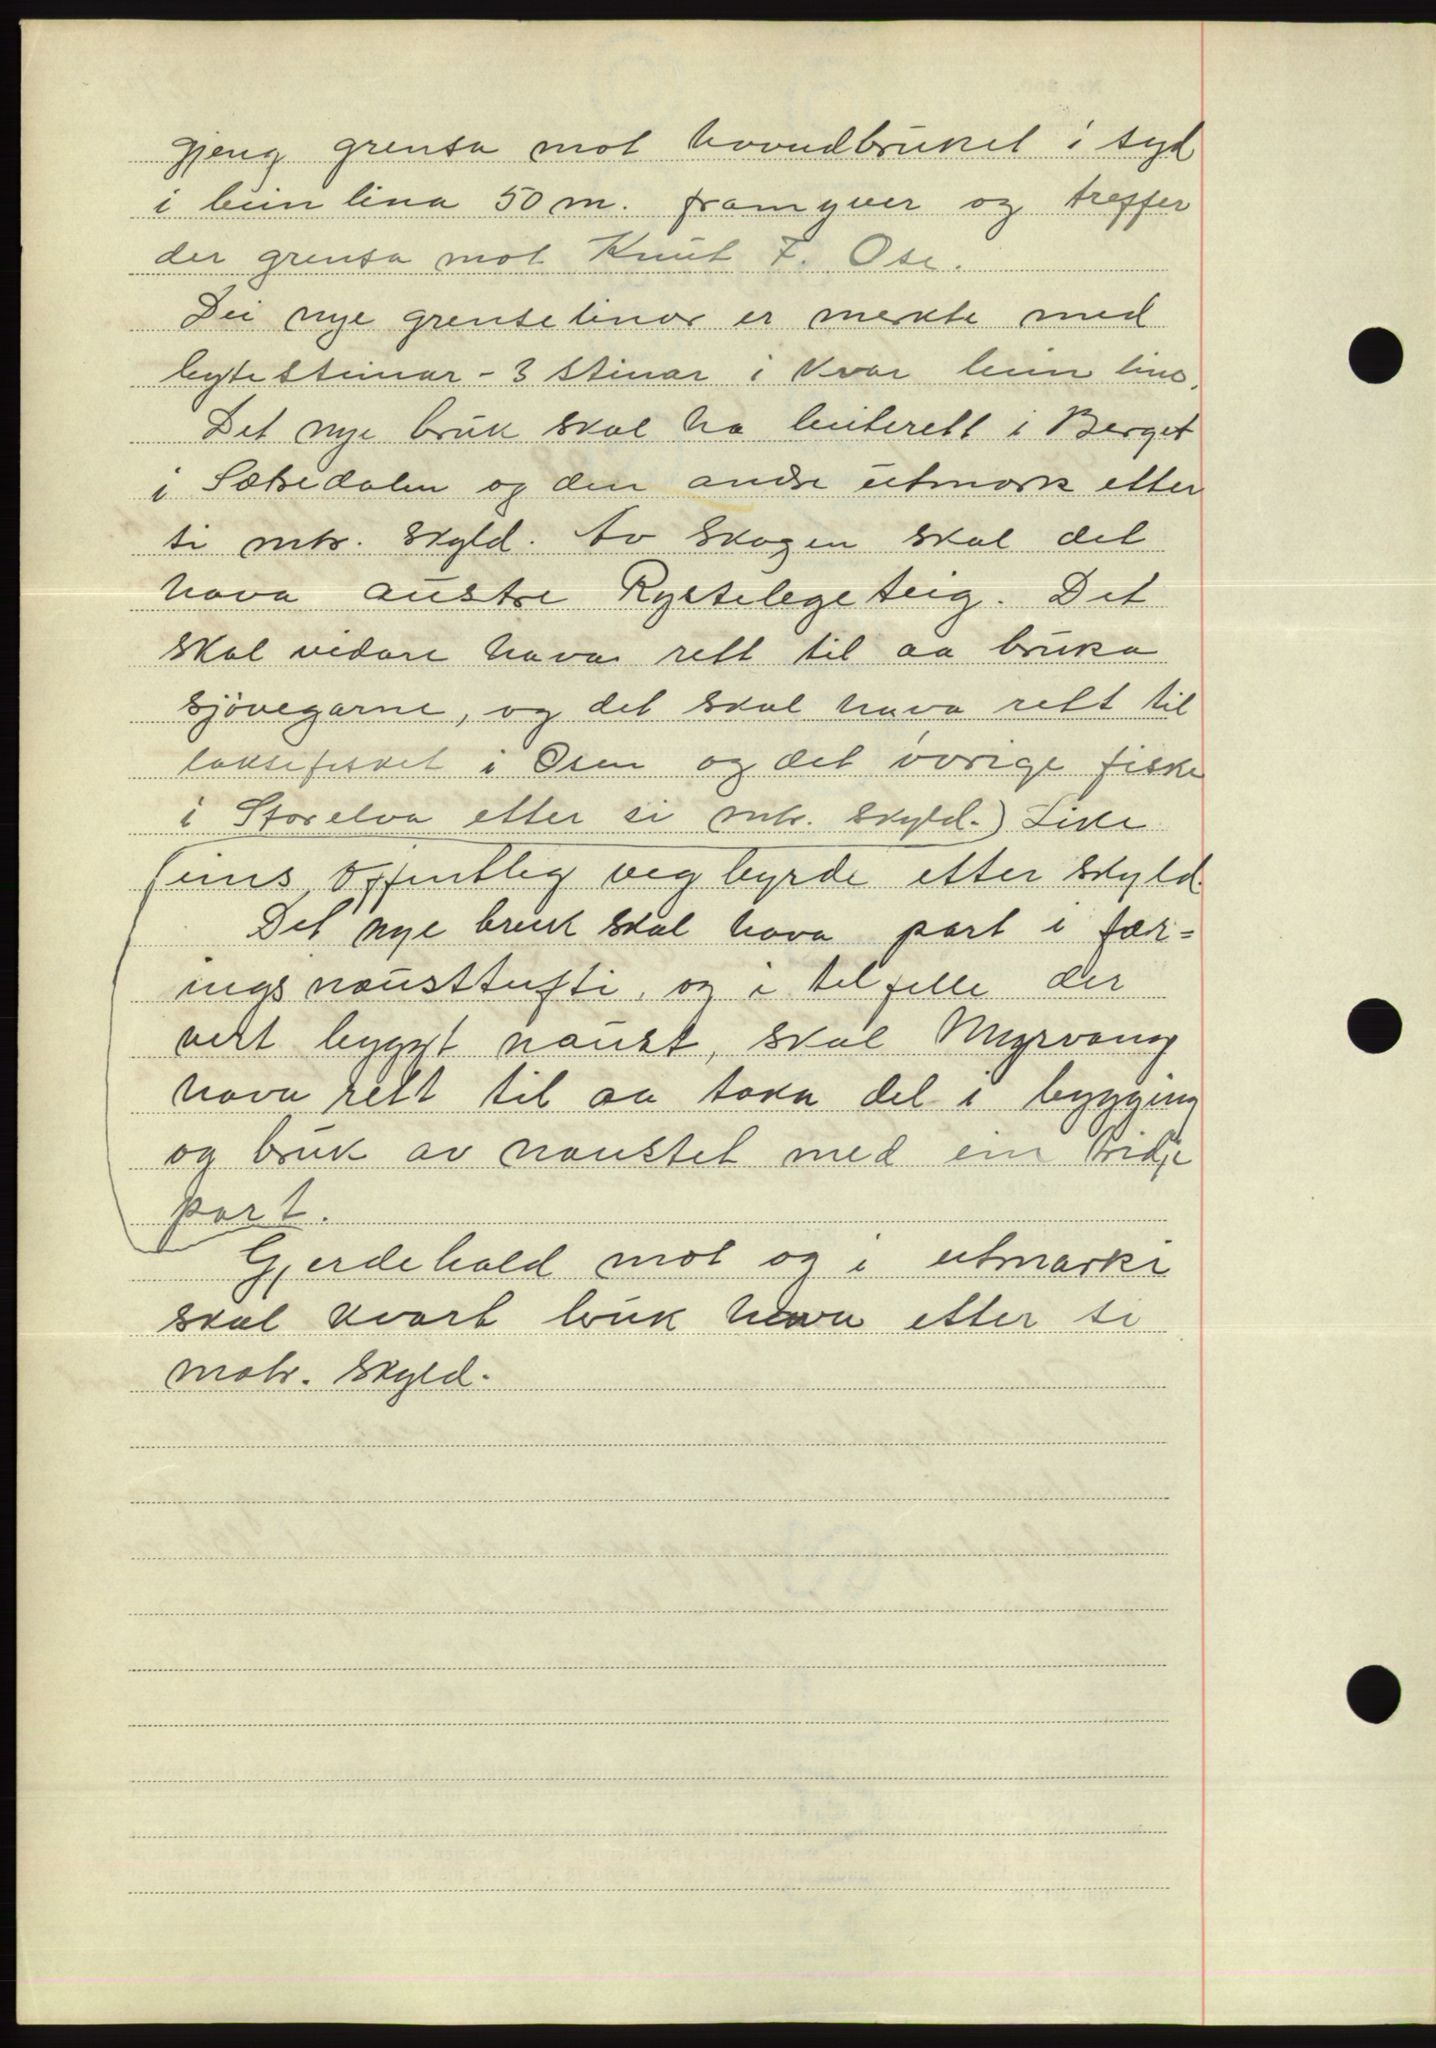 gjeng grensa mot hovudbruket i syd
i bein lina 50 m. framyver og treffer
der grensa mot Knut F. Ose.
Dei nye grenselinor er merkte med
bytesteinar - 3 steinar i kvar bein lina.
Det nye bruk skal ha beiterett i Berget
i Sætredalen og den andre utmark etter
si mtr. skyld. Av skogen skal det
hava austre Rystelegeteig. Det
skal vidare hava rett til aa bruka
sjövegarne, og det skal hava rett til
laksefisket i Osen og det övrige fiske
i Storelva etter si mtr. skyld.) Like
eins, offentleg vegbyrde etter skyld.
Det nye bruk skal hava part i fær=
ingsnausttufti, og i tilfelle der
vert bygyt naust, skal Myrvang
hava rett til aa taka del i bygging
og bruk av naustet med ein tridje
part.
Gjerdehald mot og i utmarki
skal kvart bruk hava etter si
matr. skyld.